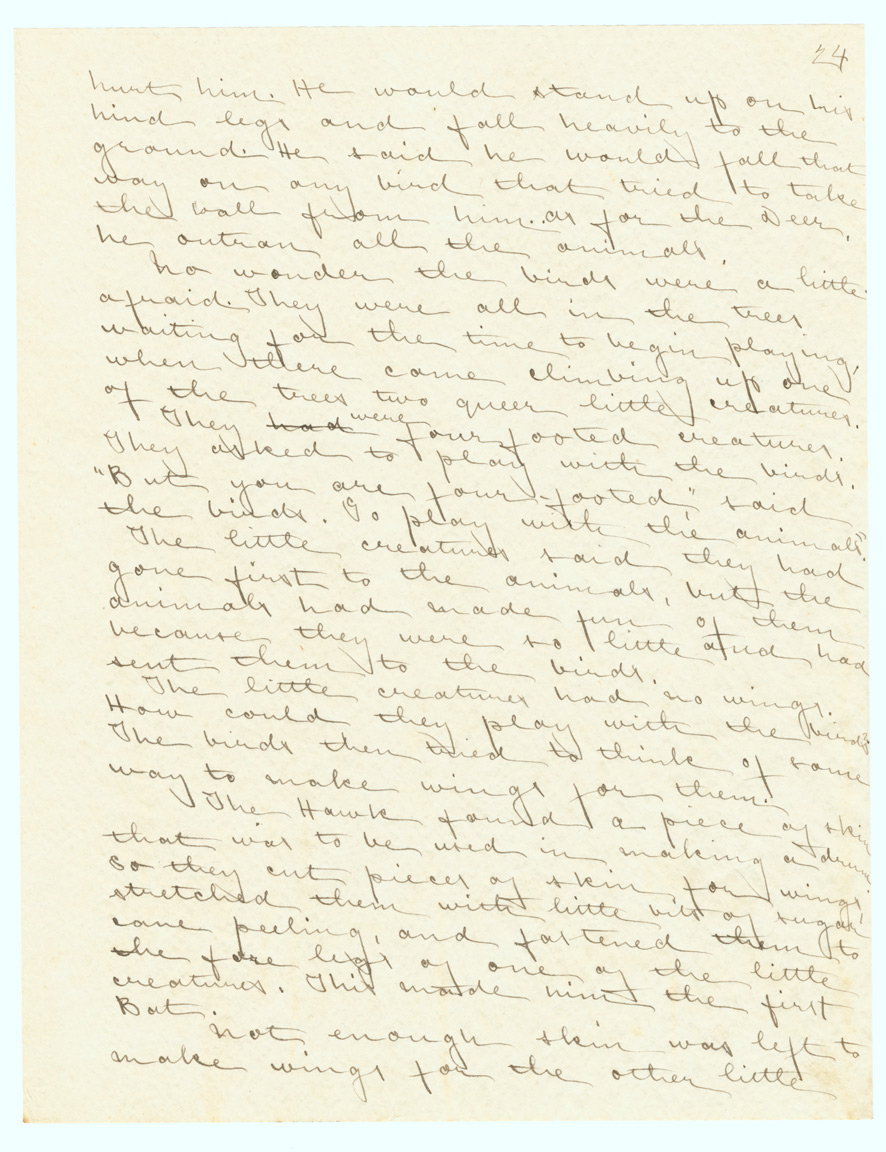 24
hurt him. He would stand up on his
hind legs and fall heavily to the
ground. He said he would fall that
way on any bird that tried to take
the ball from him. as for the Deer,
he outran all the animals.
No wonder the birds were a little
afraid. They were all in the trees
waiting for the time to begin playing,
when there came climbing up one
of the trees two queer little creatures.
They had were four-footed creatures.
They asked to play with the birds.
"But you are four-footed" said
the birds. Go play with the animals".
The little creatures said they had
gone first to the animals, but the
animals had made fun of them
because they were so little and had
sent them to the birds.
The little creatures had no wings.
How could they play with the birds
The birds then tried to think of some
way to make wings for them.
The Hawk found a piece of skin
that was to be used in making a drum.
so they cut pieces of skin for wings,
stretched them with little bits of sugar
cane peeling, and fastened them to
the fore legs of one of the little
creatures. This made him the first
Bat.
Not enough skin was left to
make wings for the other little